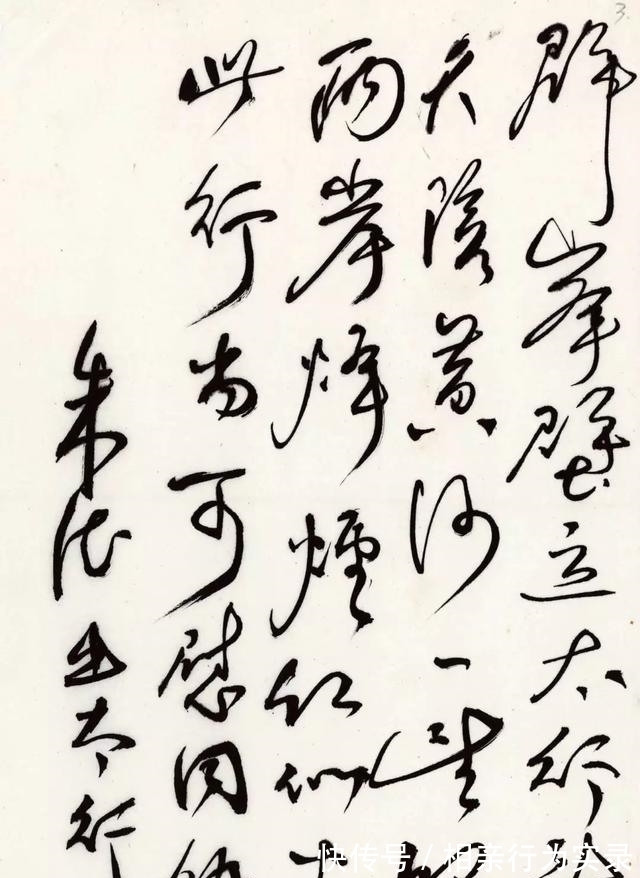 3.
群峯壁立太行
天险黄河一望
两岸烽煙红似
此行当可慰同
朱德出太行
快传号/相亲行为实录